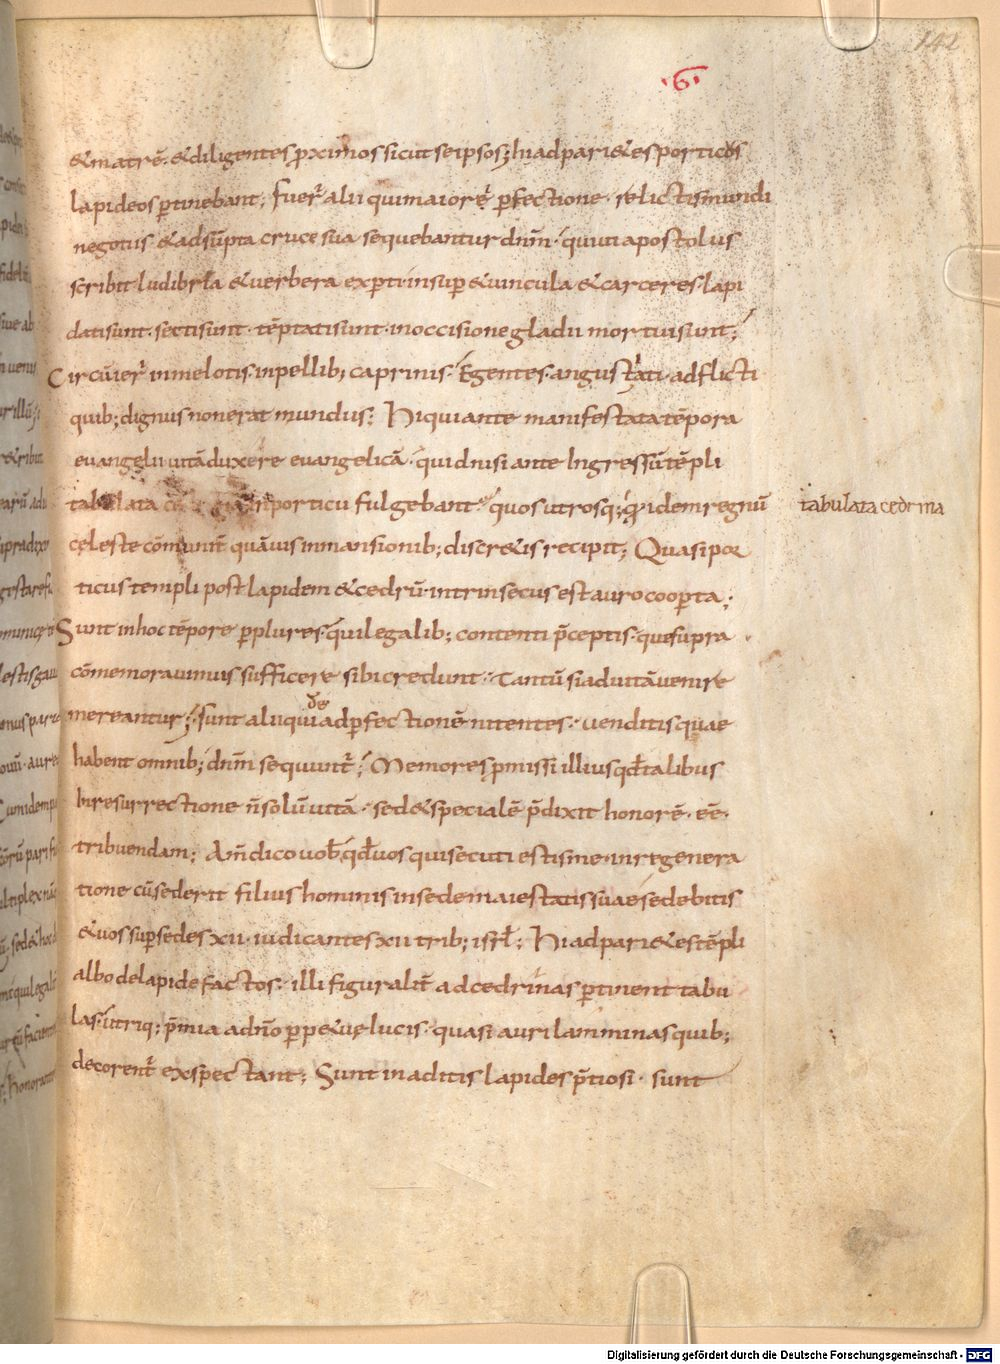 142
·6·
&matrē. &diligentes ꝓximos sicut seipsos; hi ad pari&es porticus
lapideos ꝑtinebant; fuer̄ alii qui maiore ꝑfectione. relictis mundi
negotiis &adsūpta cruce sua sequebantur dnm̄. qui ut apostolus
scribit ludibria &verbera exꝑti insuꝑ &vincula &carceres. lapi
dati sunt. secti sunt. tēptati sunt. in occisione gladii mortui sunt;
Circūier̄ in melotis. in pellib; caprinis. Egentes. angustiati. adflicti
quib; dignus non erat mundus; Hi qui ante manifestata tēpora
evangelii vitā duxere evangelicā. quid nisi ante Ingressū tēpli
tabulata in porticu fulgebant. quos utrosq; quidem regnū
tabulata cedrina
cęleste cōmunit̄ quāvis in mansionib; discr&is recipit; Quasi por
ticus templi post lapidem &cedrū intrinsecus est auro cooꝑta;
Sunt in hoc tēpore ꝑplures. qui legalib; contenti p̄ceptis. que supra
cōmemoravimus sufficere sibi credunt. Tantū si ad vitā venire
mereantur; sunt alii qui ad ꝑfectionē nitentes. venditis quae
habent omnib; dnm̄ sequunt̄; Memores ꝓmissi illius qđ talibus
In resurrectione n̄ solū vitā. sed &specialē p̄dixit honorē. eē.
tribuendam; Am̄ dico vob̄. qđ vos qui secuti estis me. in regenera
tione cū sederit filius hominis in sede maiestatis suae sedebitis
&vos suꝑ sedes xii. iudicantes xii trib; isrl̄; Hi ad pari&es tēpli
albo de lapide factos. illi figuralit̄ ad cedrinas ꝑtinent tabu
las. utriq; p̄mia a dn̄o ꝑpe&uę lucis. quasi auri lamminas quib;
decorent̄ exspectant; Sunt in aditis lapides p̄tiosi. sunt
Digitalisierung gefördert durch die Deutsche Forschungsgemeinschaft - DFG